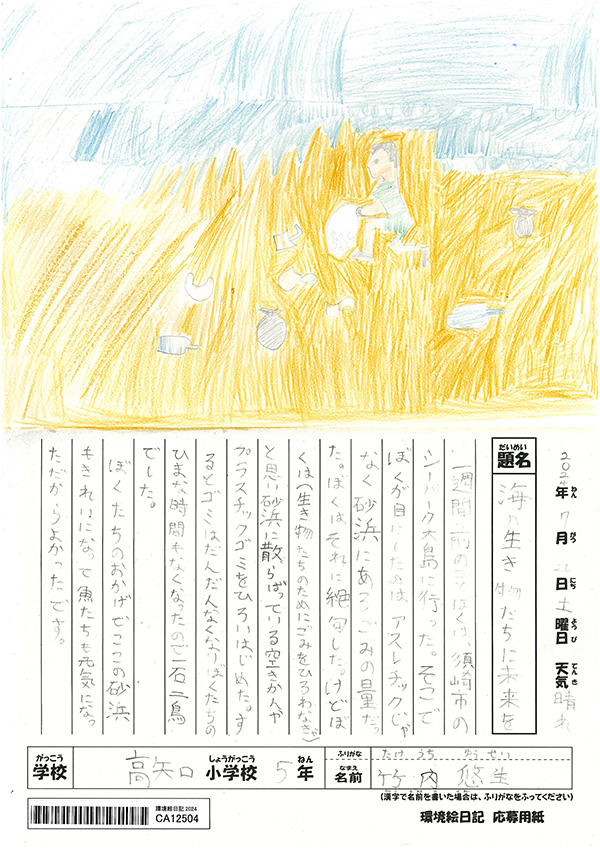 2024年ねん 7月がつ 日にち 土曜日ようび 天気てんき 晴れ
題名だいめい
海の生き物たちに未来を
一週間前のこと ぼくは、須崎市の
シーパーク大島に行った。そこで
ぼくが目にしたのは、アスレチックじゃ
なく砂浜にあるごみの量だっ
た。ぼくはそれに絶句した。けどぼ
くは(生き物たちのためにごみをひろわなきゃ)
と思い砂浜に散らばっている空きかんや
プラスチックゴミをひろいはじめた。す
るとゴミはだんだんなくなりぼくたちの
ひまな時間もなくなったので一石二鳥
でした。
ぼくたちのおかげでここの砂浜
もきれいになって魚たちも元気になっ
ただろうからよかったです。
がっこう 学校
高矢口 小学校しょうがっこう 5年ねん
ふりがな たけ うち ゆう せい
なまえ 名前 竹内 悠生
(漢字で名前を書いた場合は、ふりがなをふってください)
環境絵日記2024
CA12504
環境絵日記 応募用紙